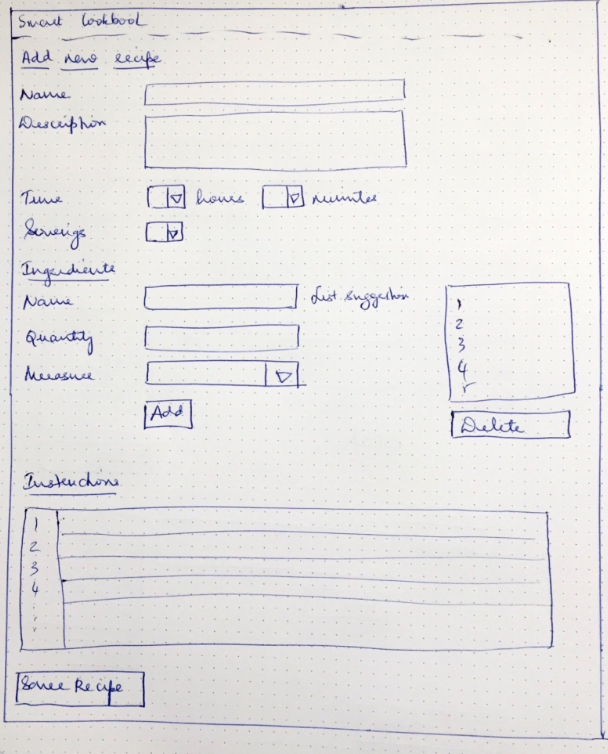 Smart Cookbook
Add new recipe
Name
Description
Time hours minutes
Servings
Ingredients
Name List suggestion
Quantity
Measure
Add
1
2
3
4
Delete
Instructions
1
2
3
4
Save Recipe